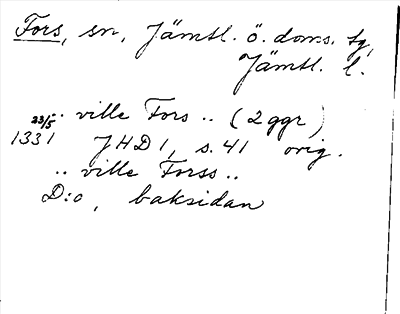 Fors, sn, Jämtl. ö. doms. tg,
Jämtl. l.
.. ville Fors .. (2 ggr)
23/5
1331 JHD 1, s. 41 orig.
.. ville Forss ..
D:o, baksidan